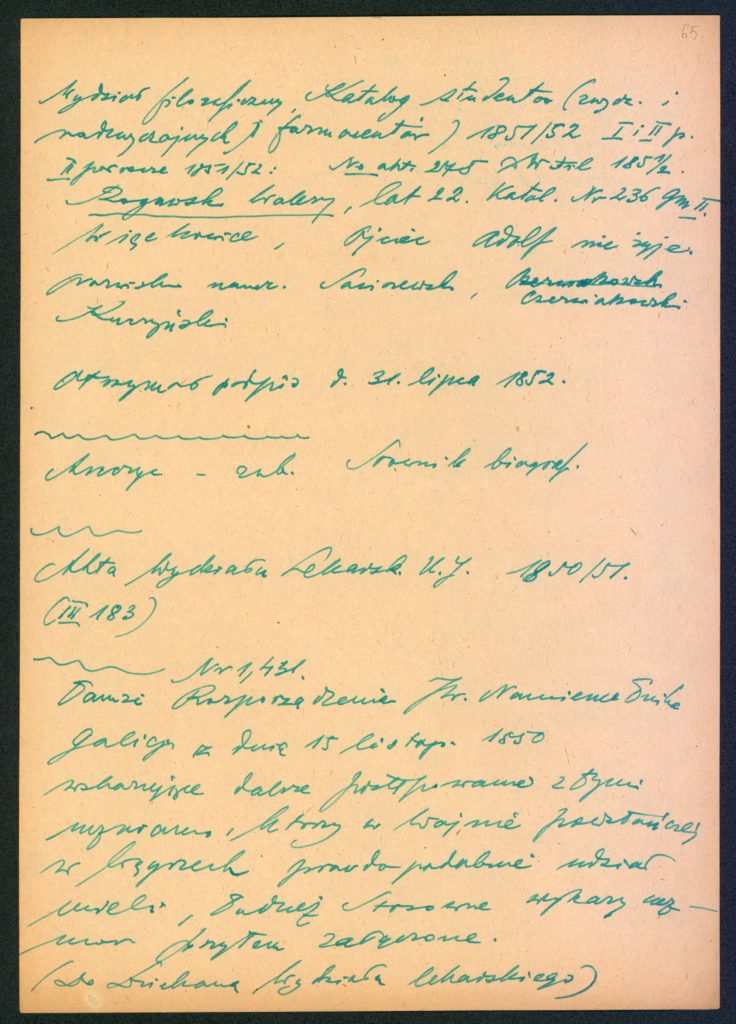 65
Wydział filozoficzny, Katalog studentów (zwycz. i
nadzwyczajnych i farmaceutów) 1851/52 I i II p.
II półrocze 1851/52: No akt. 275
Rogawski Walery, lat 22. Katal. Nr 236 gm II.
Więckowice, Ojciec Adolf nie żyje.
nazwiska naucz. Czerwiakowski
Kuczyński
Otrzymał podpis d. 31. lipca 1852.
– zob. Słownik biograf.
Akta Wydziału Lekarsk. U.J. 1850/51.
(III 183)
Nr 1,431.
Tamże Rozporządzenia Kr. Namiestnika
Galicji z dnia 15 listop. 1850
wskazujące dalsze postępowanie z tymi
uczniami, którzy w wojnie powstańczej
w Węgrzech prawdopodobnie udział
mieli, tudzież stosowne wykazy ucz-
niów przytem załączone.
(Do Dziekana Wydziału lekarskiego)